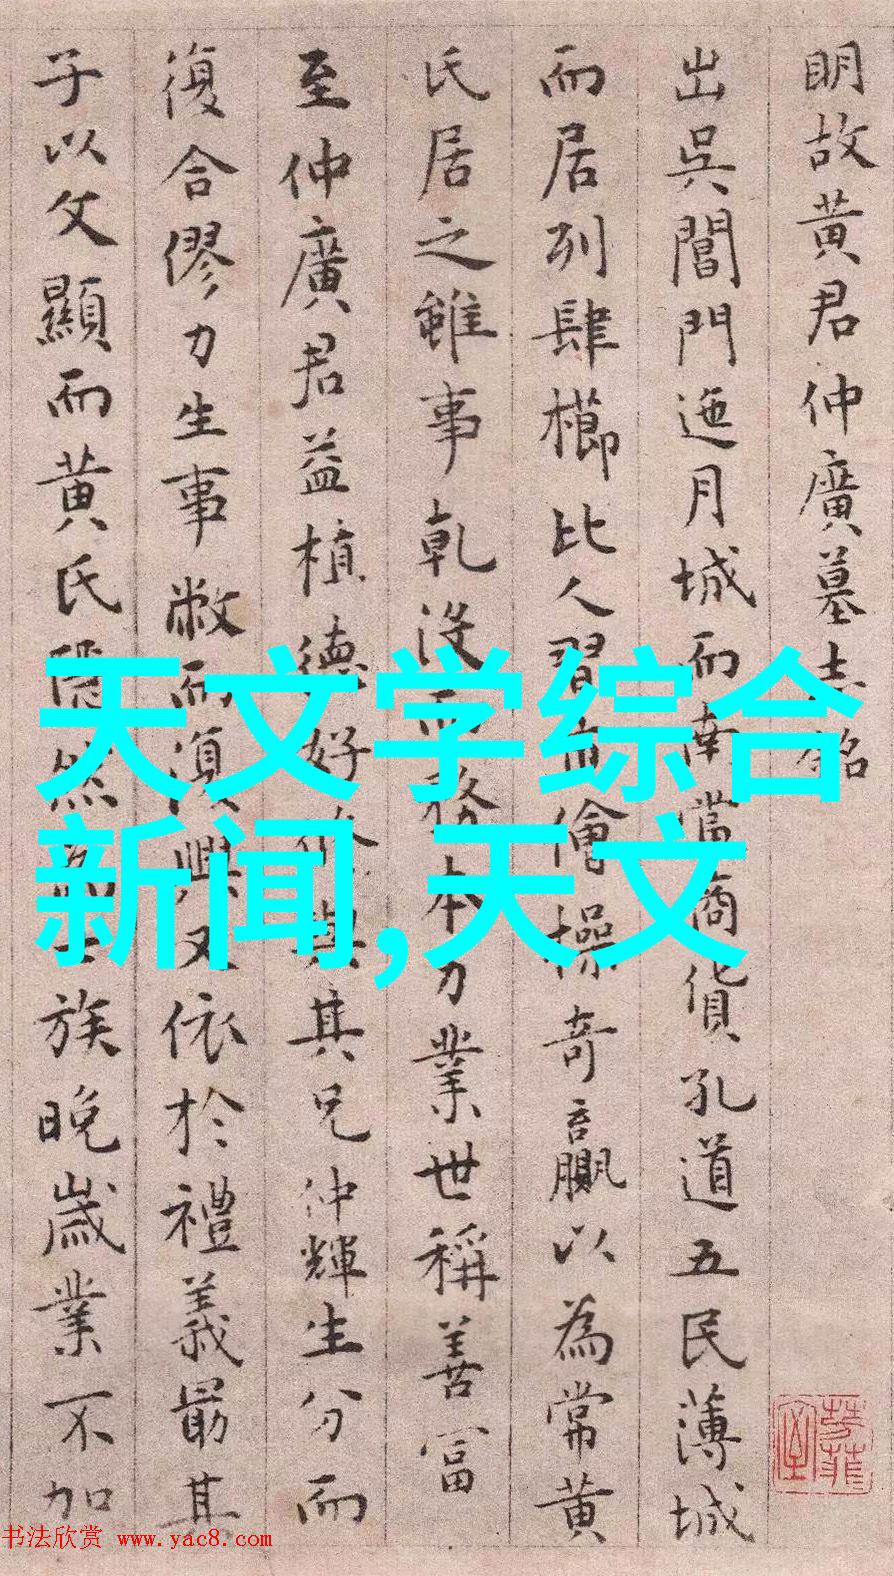 明故黃君仲廣墓志銘
出吳閶門迤月城而南當商貨孔道五民薄城
而居列肆櫛比人習市儈操奇贏以為常黃
氏居之雖事乾沒而務本力業世稱善富
至仲廣君益植德好修與其兄仲輝生分而
復合僇力生事敝而復興又依於禮義最其
子以文顯而黃氏隱然為士族晚歲業不加
天文学综合
新闻,天文
书法欣赏 www.yac8.com